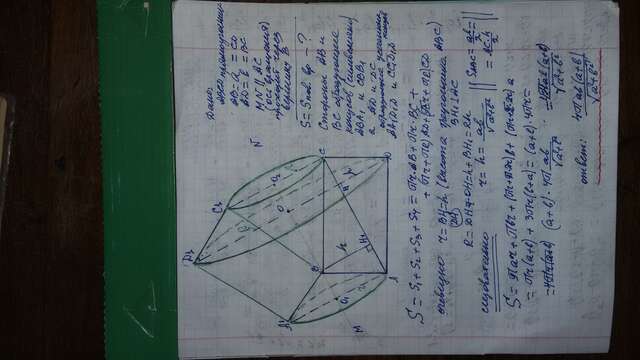 Дано:
ABCD прямоугольник
AB = a = CD
AD = b = BC
MN || AC
(ось вращения)
проходит через
вершину B
S = Sпов. вр — ?
Стороны AB и
BC образующие
конусов (симметрично)
ABA₁ и CBB₁
а AD и DC
образующие усеченных конусов
AA₁D₁D и CC₁D₁D
D₁
C₁
A₁
N
M
B
C
A
D
H
H₁
O
O₁
O₂
h
R
S = S₁ + S₂ + S₃ + S₄ = πr·AB + πr·BC +
+ (πr+πR)AD + (πr+πR)CD
очевидно r = BH₁ = h (высота треугольника ABC)
BH₁ ⊥ AC
R = DH + OH = h + BH₁ = 2h
следовательно r = h = ab/√(a²+b²)
S ABC = ab/2 =
= AC·h/2
S = πar + πbr + (πr+π2r)b + (πr+π2r)a
= πr(a+b) + 3πr(b+a) = (a+b)·4πr =
= 4πr(a+b) (a+b)·4π ab/√(a²+b²) 4πab(a+b)/√(a²+b²)
ответ: 4πab(a+b)/√(a²+b²)